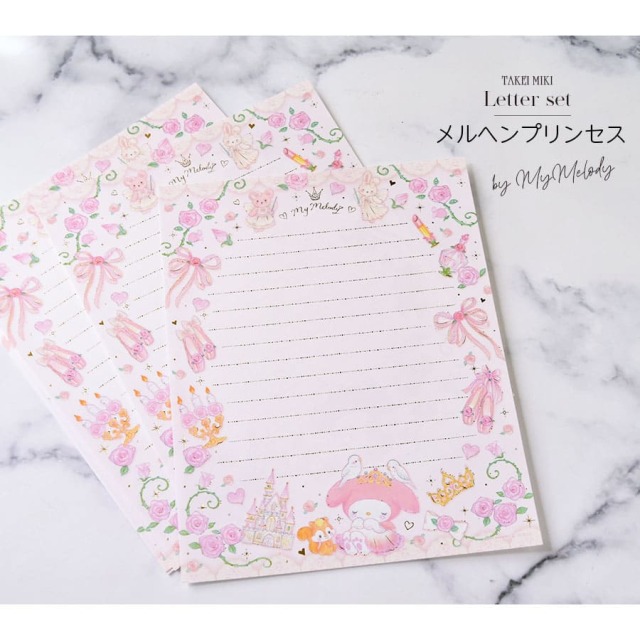 TAKEI MIKI
Letter set
メルヘンプリンセス
by MyMelody
My Melody
My Melody
My Melody